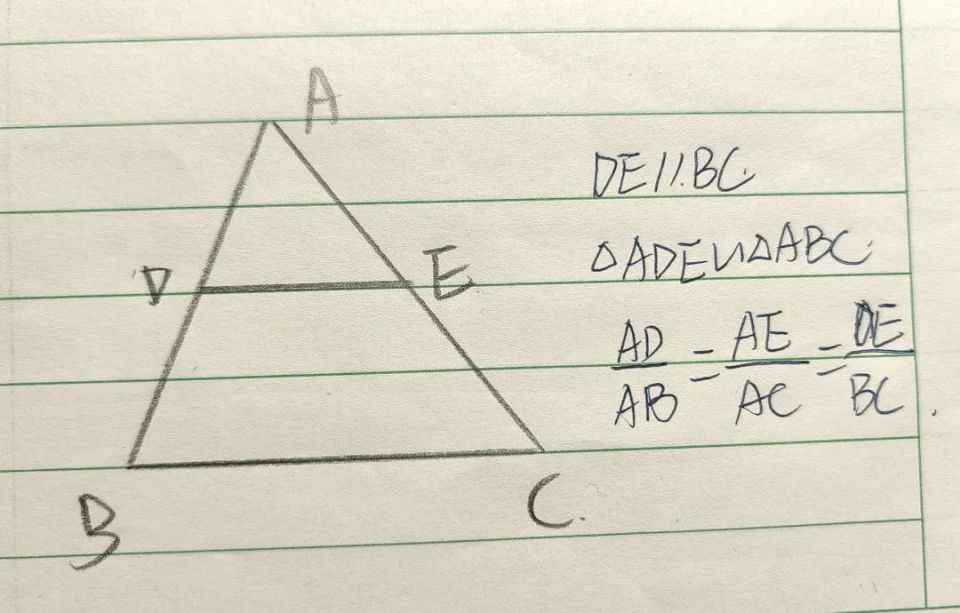 A
D
E
B
C.
DE//BC.
△ADE∽△ABC.
AD/AB = AE/AC = DE/BC.